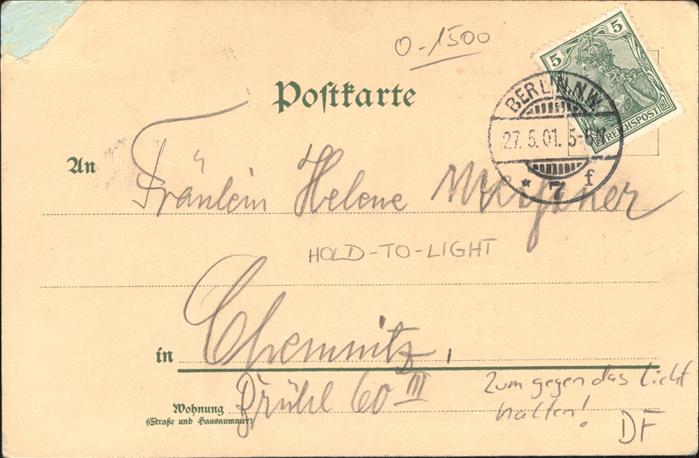 0-1500
5 5
REICHSPOST
Postkarte
BERLIN N.W.
27.5.01. 5-6N
* 7 f
An
Fräulein Helene Meißner
HOLD-TO-LIGHT
in Chemnitz,
Brühl 60 III
Wohnung
(Straße und Hausnummer)
Zum gegen das Licht
halten!
DF